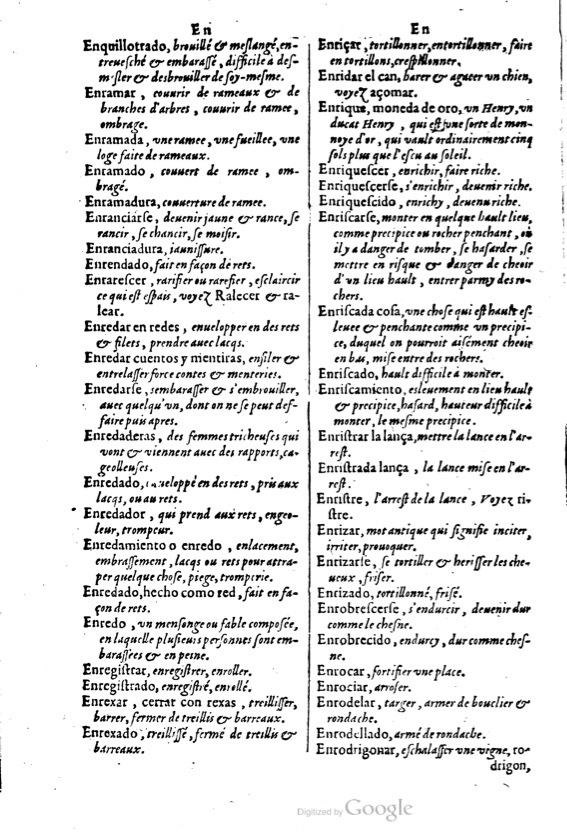 En
Enquillotrado, brouillé & meslangé, en-
treuesché & embarassé, difficile à des-
mesler & desbrouiller de soy-mesme.
Enramar, couurir de rameaux & de
branches d'arbres, couurir de ramee,
ombrage.
Enramada, vne ramee, vne fueillee, vne
loge faite de rameaux.
Enramado, couuert de ramee, om-
bragé.
Enramadura, couuerture de ramee.
Enranciarse, deuenir jaune & rance, se
rancir, se chancir, se moisir.
Enranciadura, jaunissure.
Enrendado, fait en façon de rets.
Enrarescer, rarifier ou rarefier, esclaircir
ce qui est espais, voyez Ralecer & ra-
lear.
Enredar en redes, enuelopper en des rets
& filets, prendre auec laqs.
Enredar cuentos y mentiras, enfiler &
entrelasser force contes & menteries.
Enredarse, sembarasser & s'embrouiller,
auec quelqu'vn, dont on ne se peut def-
faire puis apres.
Enredaderas, des femmes tricheuses qui
vont & viennent auec des rapports, ca-
geolleuses.
Enredado, enueloppé en des rets, pris aux
lacqs, ou au rets.
Enredador, qui prend aux rets, engeo-
leur, trompeur.
Enredamiento o enredo, enlacement,
embrassement, lacqs ou rets pour attra-
per quelque chose, piege, tromperie.
Enredado, hecho como red, fait en fa-
çon de rets.
Enredo, vn mensonge ou fable composée,
en laquelle plusieurs personnes sont em-
barassées & en peine.
Enregistrar, enregistrer, enroller.
Enregistrado, enregistré, enrollé.
Enrexar, cerrar con rexas, treillisser,
barrer, fermer de treillis & barreaux.
Enrexado, treillissé, fermé de treillis &
barreaux.
En
Enriçar, tortillonner, entortillonner, faire
en tortillons, crespillonner.
Enridar el can, harer & agacer vn chien,
voyez açomar.
Enrique, moneda de oro, vn Henry, vn
ducat Henry, qui est vne sorte de mon-
noye d'or, qui vault ordinairement cinq
sols plus que l'escu au soleil.
Enriquescer, enrichir, faire riche.
Enriquescerse, s'enrichir, deuenir riche.
Enriquescido, enrichy, deuenu riche.
Enriscarse, monter en quelque hault lieu,
comme precipice ou rocher penchant, où
il y a danger de tomber, se hasarder, se
mettre en risque & danger de cheoir
d'vn lieu hault, entrer parmy des ro-
chers.
Enriscada cosa, vne chose qui est hault es-
leuee & penchante comme vn precipi-
ce, duquel on pourroit aisément cheoir
en bas, mise entre des rochers.
Enriscado, hault difficile à monter.
Enriscamiento, esleuement en lieu hault
& precipice, hasard, hauteur difficile à
monter, le mesme precipice.
Enristrar la lança, mettre la lance en l'ar-
rest.
Enristrada lança, la lance mise en l'ar-
rest.
Enristre, l'arrest de la lance, Voyez ri-
stre.
Enrizar, mot antique qui signifie inciter,
irriter, prouoquer.
Enrizarse, se tortiller & herisser les che-
ueux, friser.
Enrizado, tortillonné, frisé.
Enrobrescerse, s'endurcir, deuenir dur
comme le chesne.
Enrobrecido, endurcy, dur comme ches-
ne.
Enrocar, fortifier vne place.
Enrociar, arroser.
Enrodelar, targer, armer de bouclier &
rondache.
Enrodellado, armé de rondache.
Enrodrigonar, eschalasser vne vigne, ro-
drigon,
Digitized by Google